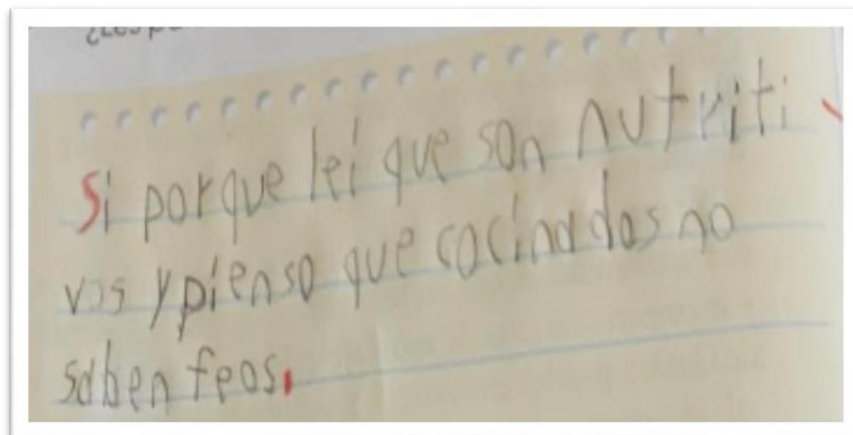 Si porque leí que son nutriti-
vos y pienso que cocinados no
saben feos.